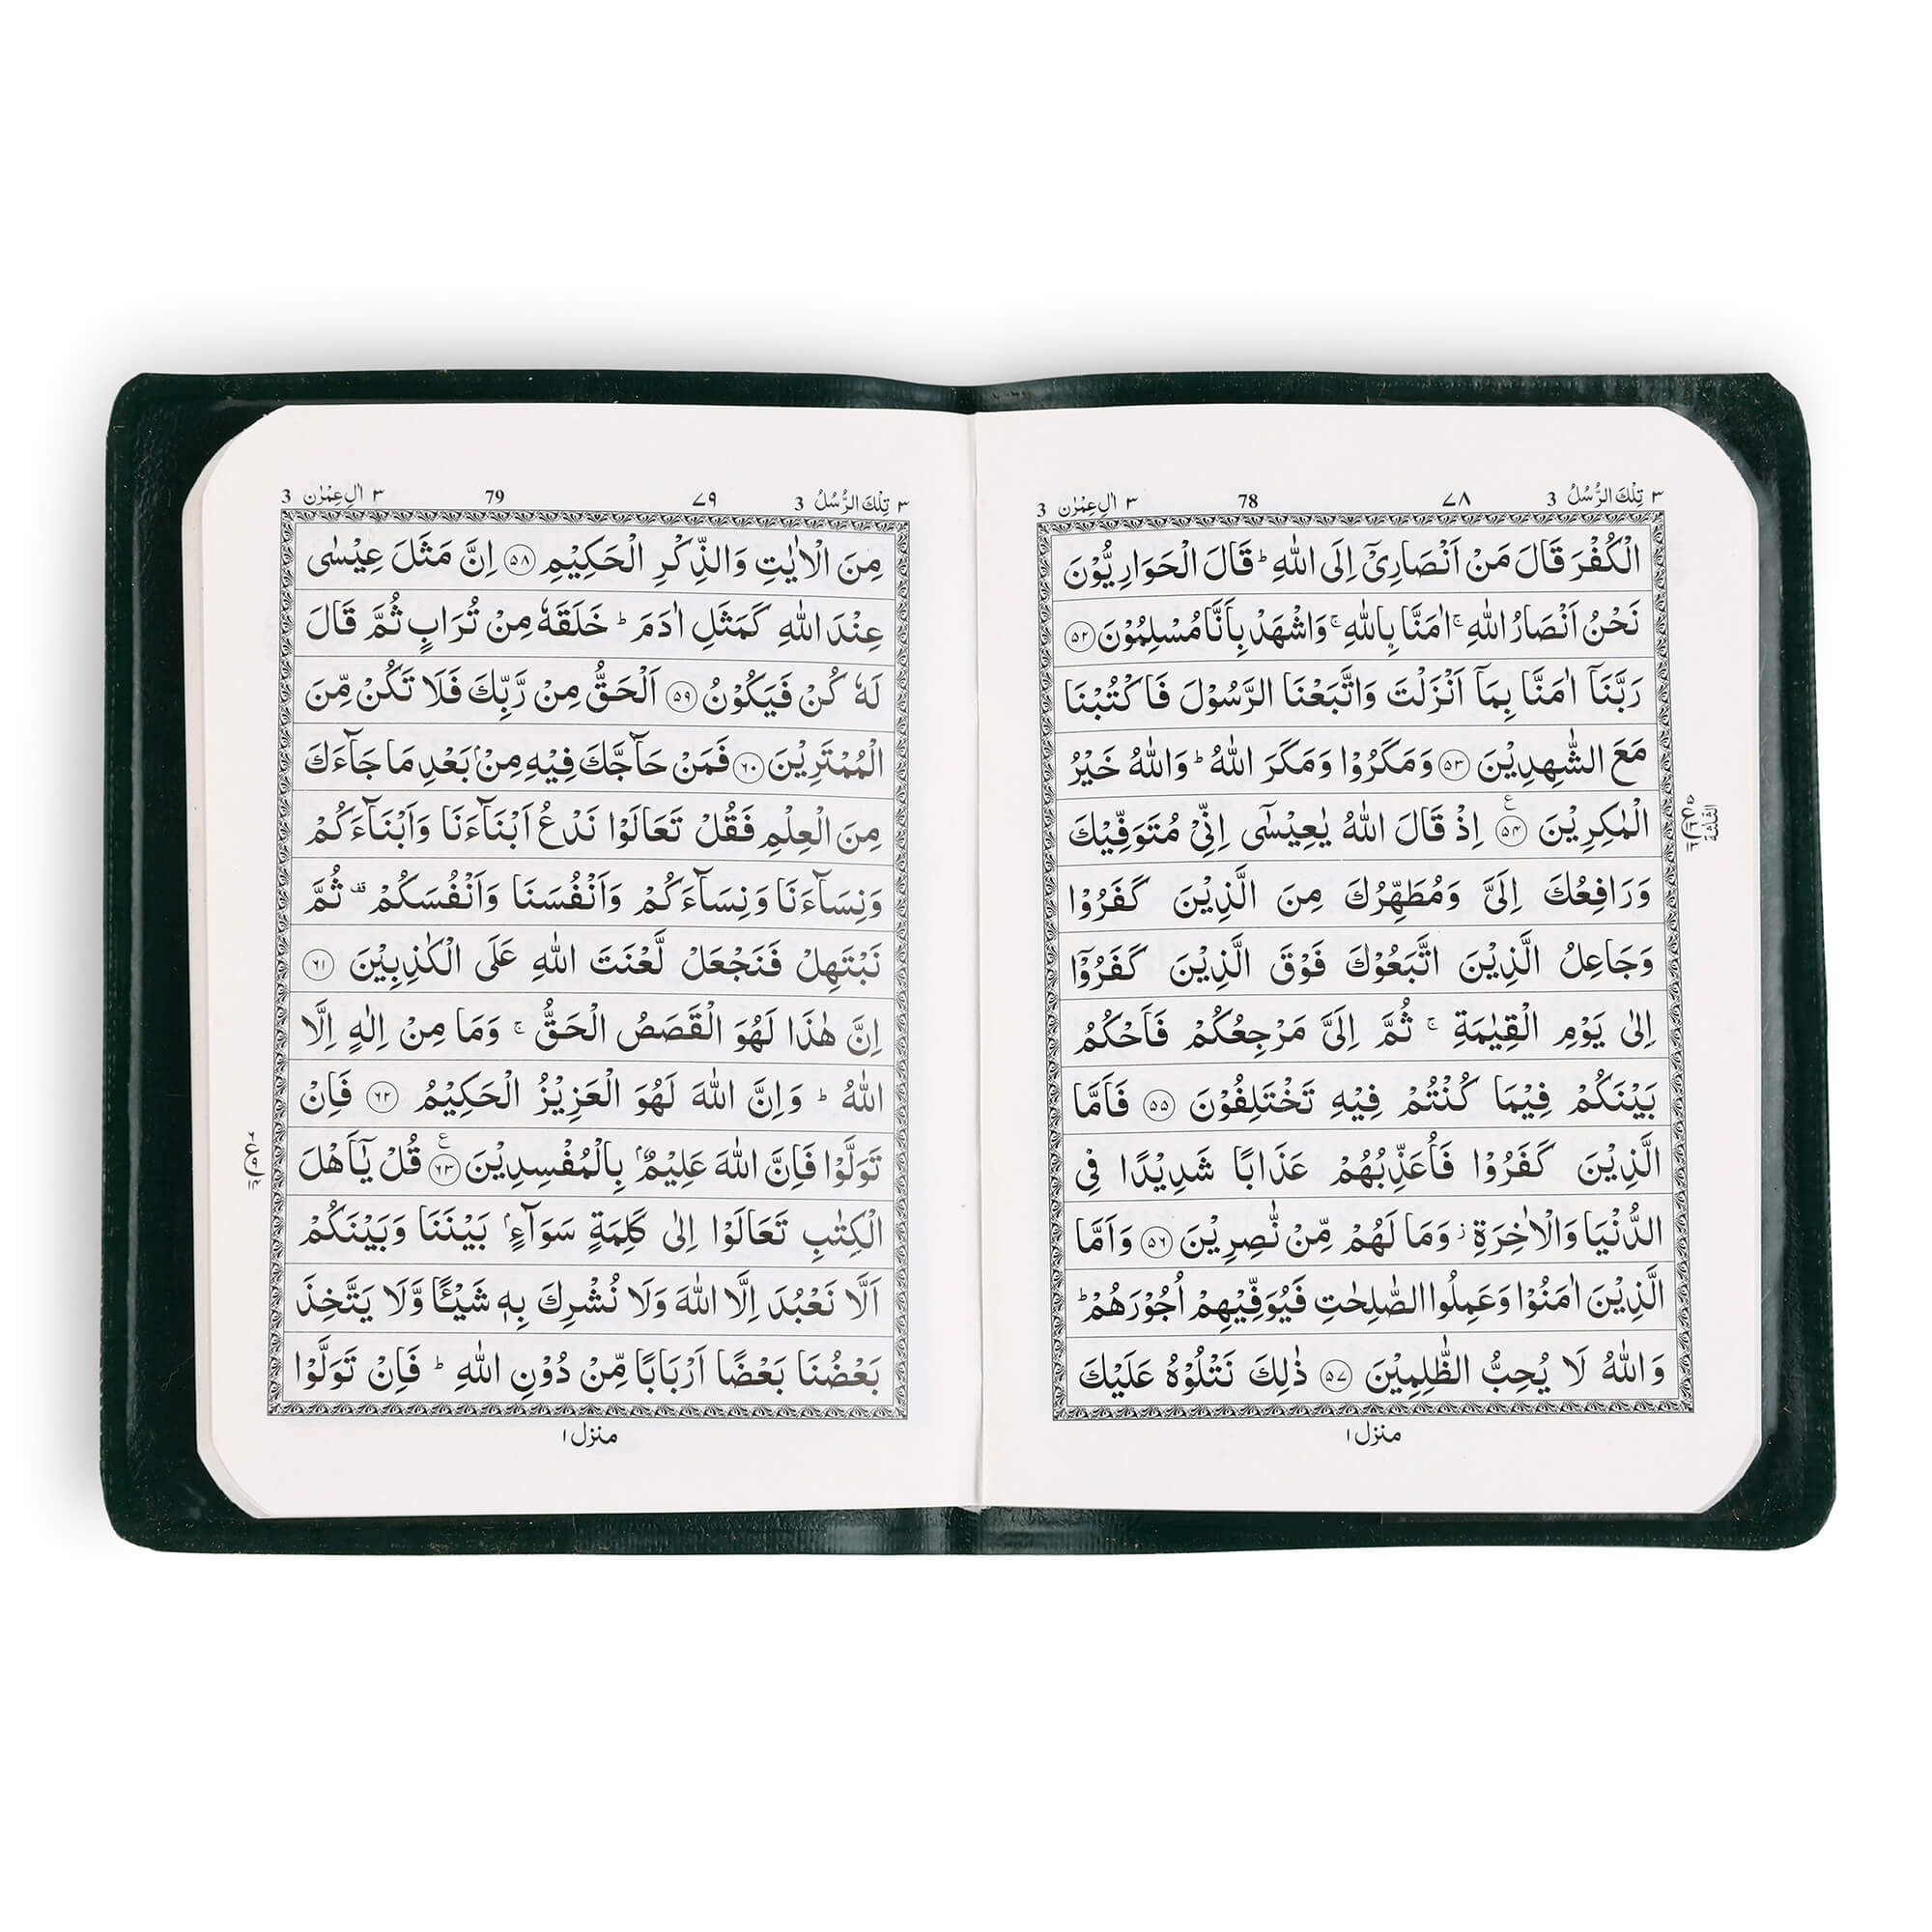 ٣ تِلْكَ الرُّسُلُ 3 ٧٨ 78 ٣ اٰلِ عِمْرٰن 3
الْكُفْرَ قَالَ مَنْ اَنْصَارِیْۤ اِلَی اللّٰهِ ؕ قَالَ الْحَوَارِیُّوْنَ
نَحْنُ اَنْصَارُ اللّٰهِ ۚ اٰمَنَّا بِاللّٰهِ ۚ وَاشْهَدْ بِاَنَّا مُسْلِمُوْنَ ﴿۵۲﴾
رَبَّنَاۤ اٰمَنَّا بِمَاۤ اَنْزَلْتَ وَاتَّبَعْنَا الرَّسُوْلَ فَاكْتُبْنَا
مَعَ الشّٰهِدِیْنَ ﴿۵۳﴾ وَمَكَرُوْا وَمَكَرَ اللّٰهُ ؕ وَاللّٰهُ خَیْرُ
الْمٰكِرِیْنَ ﴿۵۴﴾ اِذْ قَالَ اللّٰهُ یٰعِیْسٰۤی اِنِّیْ مُتَوَفِّیْكَ
وَرَافِعُكَ اِلَیَّ وَمُطَهِّرُكَ مِنَ الَّذِیْنَ كَفَرُوْا
وَجَاعِلُ الَّذِیْنَ اتَّبَعُوْكَ فَوْقَ الَّذِیْنَ كَفَرُوْۤا
اِلٰی یَوْمِ الْقِیٰمَةِ ۚ ثُمَّ اِلَیَّ مَرْجِعُكُمْ فَاَحْكُمُ
بَیْنَكُمْ فِیْمَا كُنْتُمْ فِیْهِ تَخْتَلِفُوْنَ ﴿۵۵﴾ فَاَمَّا
الَّذِیْنَ كَفَرُوْا فَاُعَذِّبُهُمْ عَذَابًا شَدِیْدًا فِی
الدُّنْیَا وَالْاٰخِرَةِ ؗ وَمَا لَهُمْ مِّنْ نّٰصِرِیْنَ ﴿۵۶﴾ وَاَمَّا
الَّذِیْنَ اٰمَنُوْا وَعَمِلُوا الصّٰلِحٰتِ فَیُوَفِّیْهِمْ اُجُوْرَهُمْ ؕ
وَاللّٰهُ لَا یُحِبُّ الظّٰلِمِیْنَ ﴿۵۷﴾ ذٰلِكَ نَتْلُوْهُ عَلَیْكَ
منزل ١
٣ تِلْكَ الرُّسُلُ 3 ٧٩ 79 ٣ اٰلِ عِمْرٰن 3
مِنَ الْاٰیٰتِ وَالذِّكْرِ الْحَكِیْمِ ﴿۵۸﴾ اِنَّ مَثَلَ عِیْسٰی
عِنْدَ اللّٰهِ كَمَثَلِ اٰدَمَ ؕ خَلَقَهٗ مِنْ تُرَابٍ ثُمَّ قَالَ
لَهٗ كُنْ فَیَكُوْنُ ﴿۵۹﴾ اَلْحَقُّ مِنْ رَّبِّكَ فَلَا تَكُنْ مِّنَ
الْمُمْتَرِیْنَ ﴿۶۰﴾ فَمَنْ حَآجَّكَ فِیْهِ مِنْۢ بَعْدِ مَا جَآءَكَ
مِنَ الْعِلْمِ فَقُلْ تَعَالَوْا نَدْعُ اَبْنَآءَنَا وَاَبْنَآءَكُمْ
وَنِسَآءَنَا وَنِسَآءَكُمْ وَاَنْفُسَنَا وَاَنْفُسَكُمْ ۫ ثُمَّ
نَبْتَهِلْ فَنَجْعَلْ لَّعْنَتَ اللّٰهِ عَلَی الْكٰذِبِیْنَ ﴿۶۱﴾
اِنَّ هٰذَا لَهُوَ الْقَصَصُ الْحَقُّ ۚ وَمَا مِنْ اِلٰهٍ اِلَّا
اللّٰهُ ؕ وَاِنَّ اللّٰهَ لَهُوَ الْعَزِیْزُ الْحَكِیْمُ ﴿۶۲﴾ فَاِنْ
تَوَلَّوْا فَاِنَّ اللّٰهَ عَلِیْمٌۢ بِالْمُفْسِدِیْنَ ﴿۶۳﴾ قُلْ یٰۤاَهْلَ
الْكِتٰبِ تَعَالَوْا اِلٰی كَلِمَةٍ سَوَآءٍۭ بَیْنَنَا وَبَیْنَكُمْ
اَلَّا نَعْبُدَ اِلَّا اللّٰهَ وَلَا نُشْرِكَ بِهٖ شَیْـًٔا وَّلَا یَتَّخِذَ
بَعْضُنَا بَعْضًا اَرْبَابًا مِّنْ دُوْنِ اللّٰهِ ؕ فَاِنْ تَوَلَّوْا
منزل ١